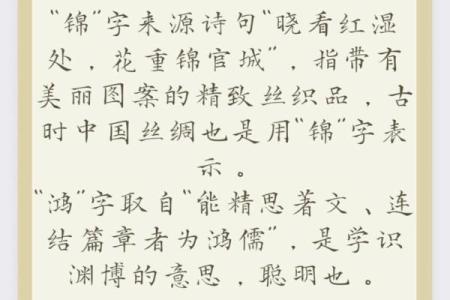 “锦”字来源诗句“晓看红湿
处，花重锦官城”，指带有
美丽图案的精致丝织品，古
时中国丝绸也是用“锦”字表
示。
“鸿”字取自“能精思著文、连
结篇章者为鸿儒”，是学识
渊博的意思，聪明也。